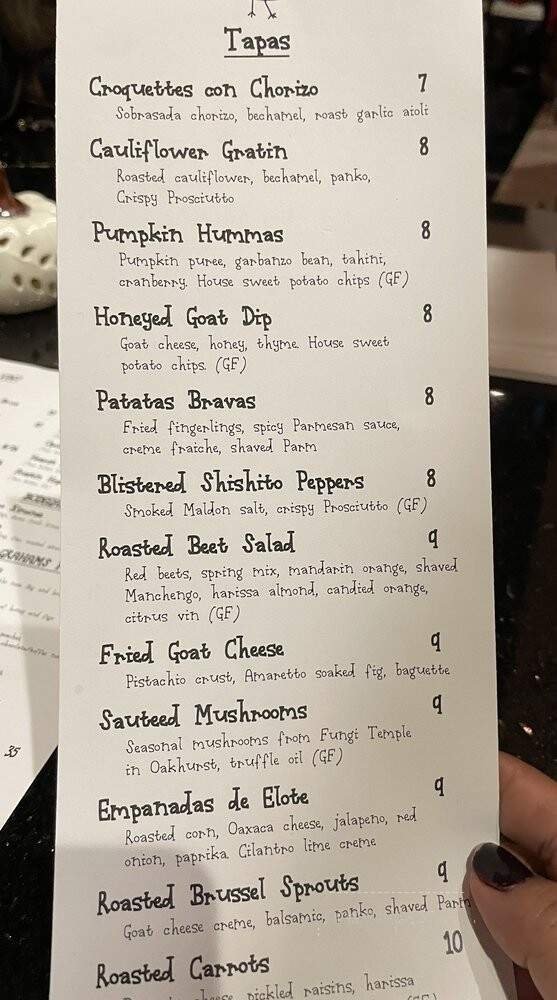 Tapas
Croquettes con Chorizo 7
Sobrasada chorizo, bechamel, roast garlic aioli
Cauliflower Gratin 8
Roasted cauliflower, bechamel, panko,
Crispy Prosciutto
Pumpkin Hummas 8
Pumpkin puree, garbanzo bean, tahini,
cranberry. House sweet potato chips (GF)
Honeyed Goat Dip 8
Goat cheese, honey, thyme. House sweet
potato chips. (GF)
Patatas Bravas 8
Fried fingerlings, spicy Parmesan sauce,
creme fraiche, shaved Parm
Blistered Shishito Peppers 8
Smoked Maldon salt, crispy Prosciutto (GF)
Roasted Beet Salad 9
Red beets, spring mix, mandarin orange, shaved
Manchengo, harissa almond, candied orange,
citrus vin (GF)
Fried Goat Cheese 9
Pistachio crust, Amaretto soaked fig, baguette
Sauteed Mushrooms 9
Seasonal mushrooms from Fungi Temple
in Oakhurst, truffle oil (GF)
Empanadas de Elote 9
Roasted corn, Oaxaca cheese, jalapeno, red
onion, paprika. Cilantro lime creme
Roasted Brussel Sprouts 9
Goat cheese creme, balsamic, panko, shaved Parm
Roasted Carrots 10
cheese, pickled raisins, harissa
35